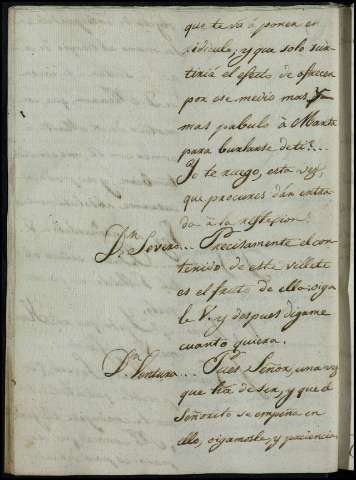 que te va à poner en
ridiculo; y que solo sur-
tiria el efecto de ofrecer
por ese medio mas y
mas pabulo à Marta
para burlarse de ti?...
Yo te ruego, esta vez,
que procures dàr entra-
da à la reflexion.
Dn. Severo... Precisamente el con-
tenido de este villete
es el fruto de ella: oiga-
le V. y despues digame
cuanto quiera.
Dn. Ventura... Pues Señor, una vez
que ha de ser, y que el
Señorito se empeña en
ello, oigamosle, y paciencia,